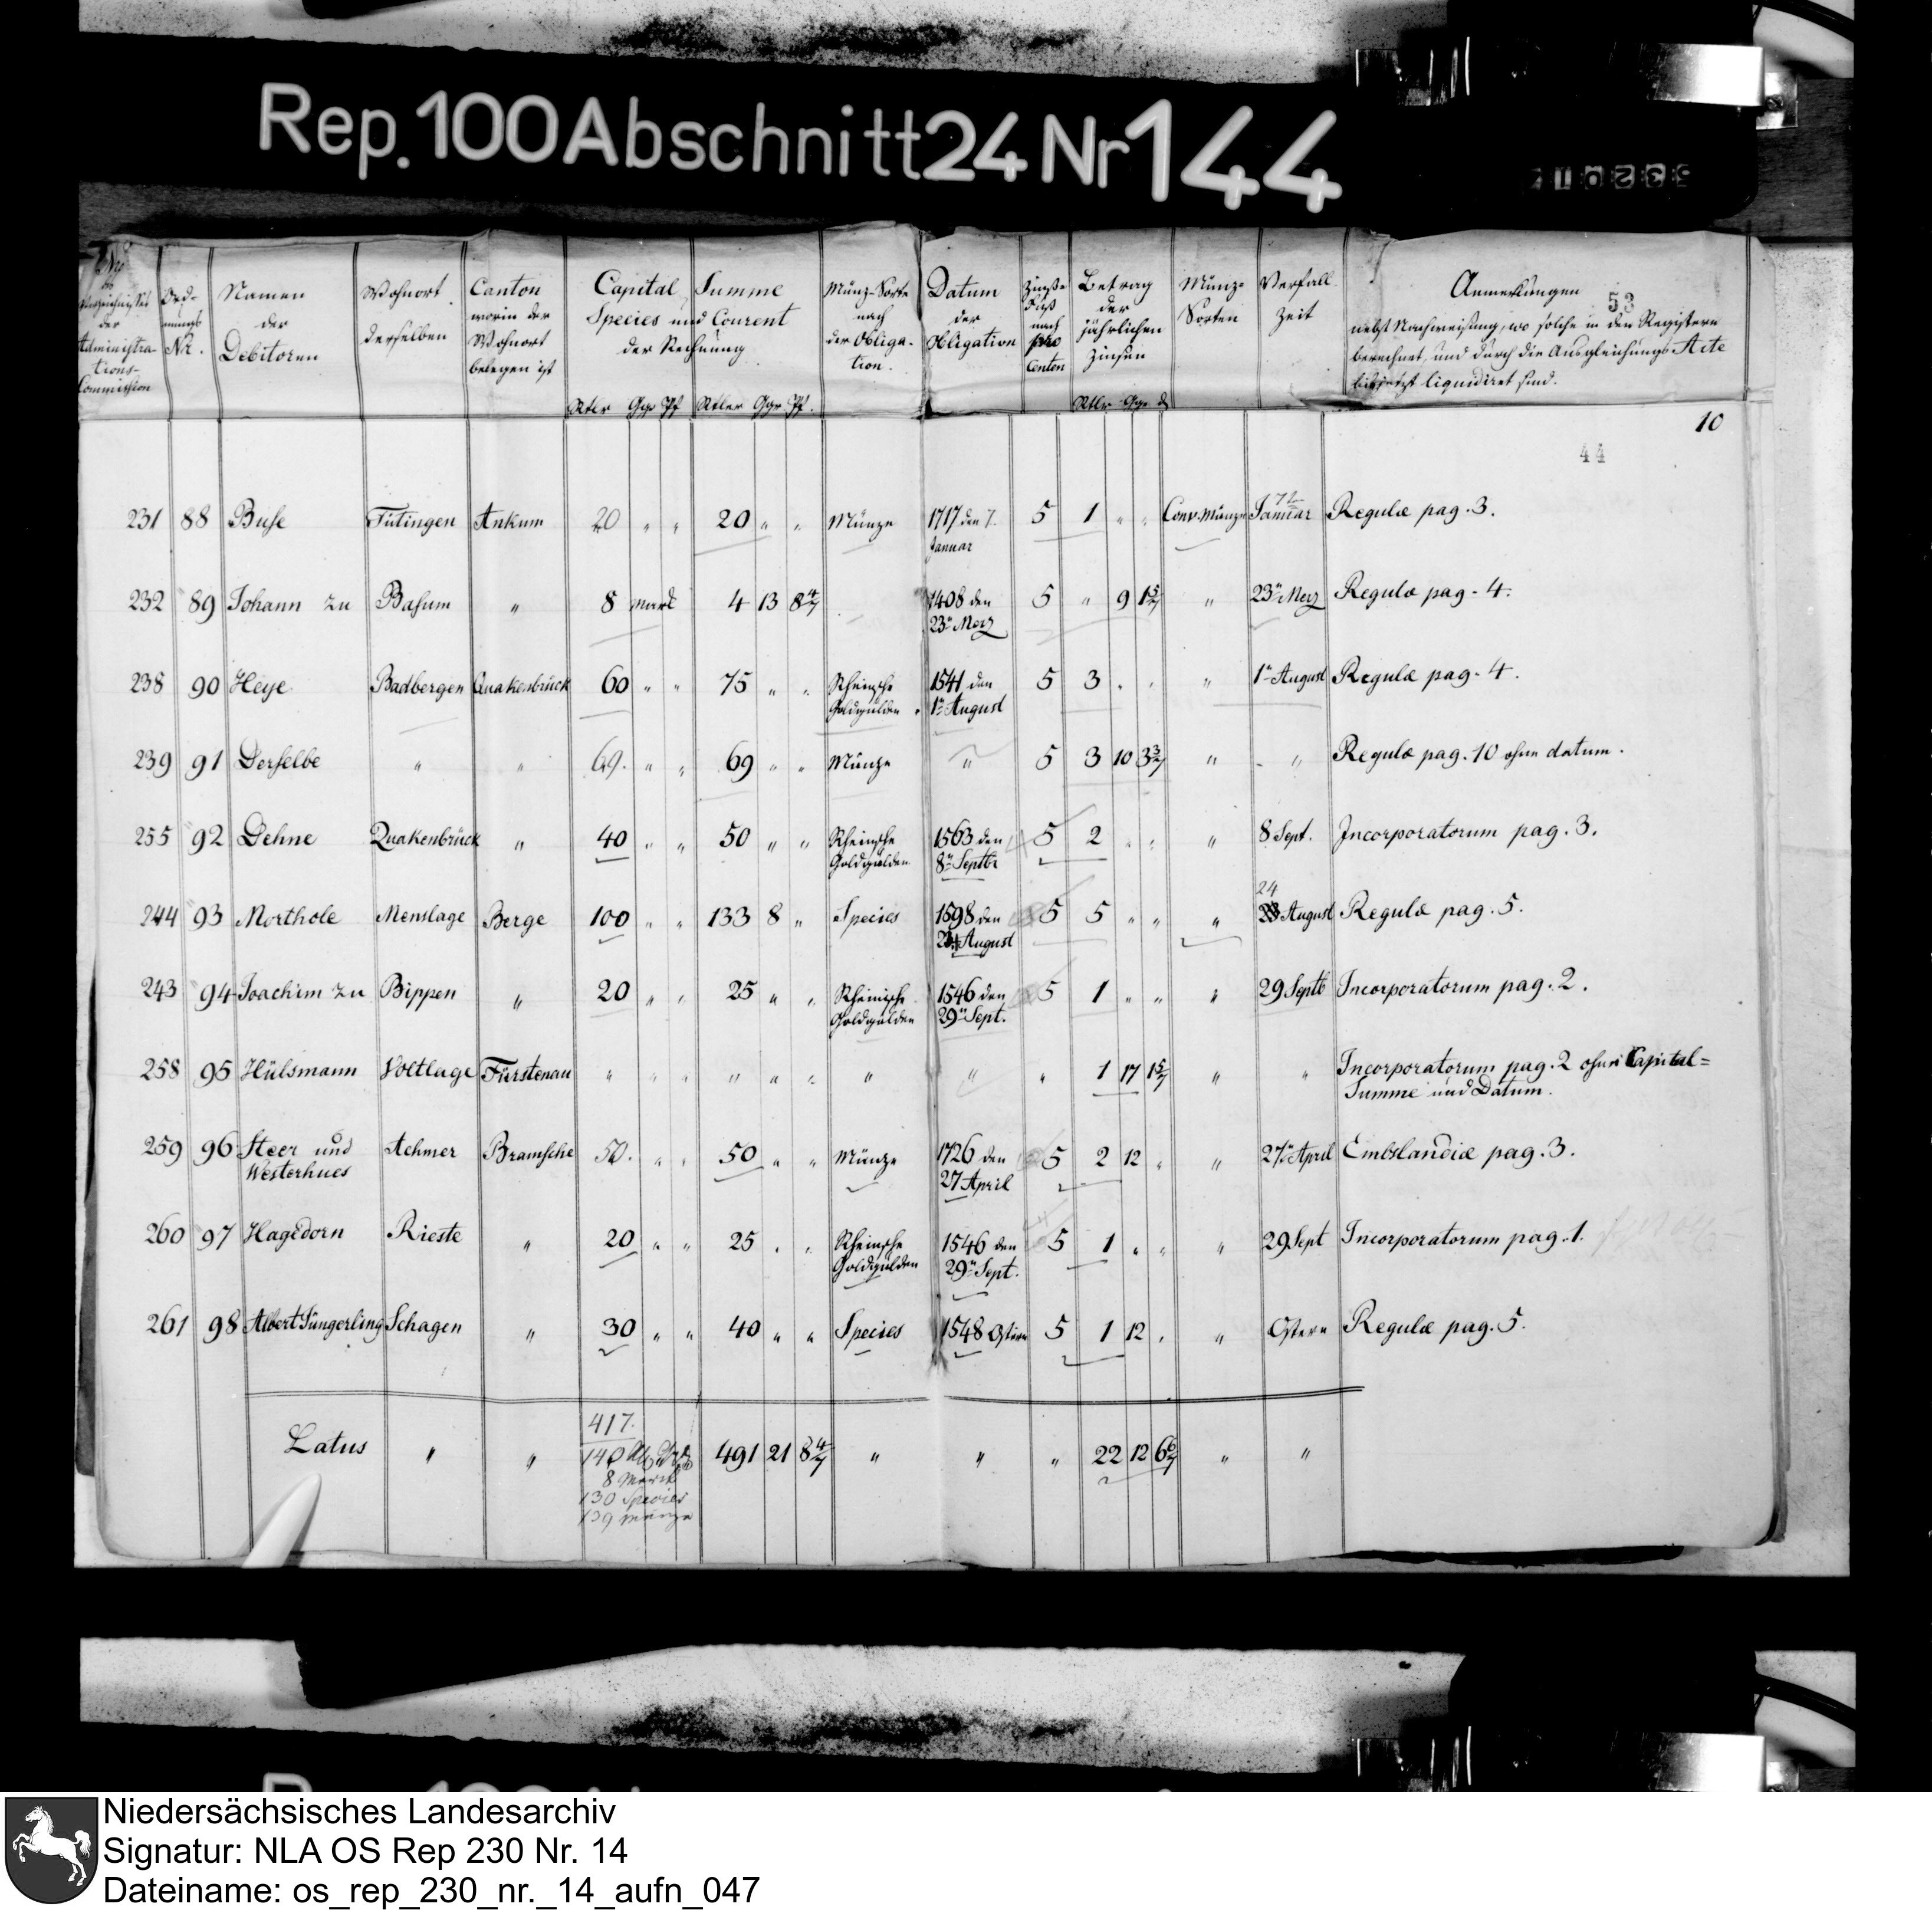 Rep. 100 Abschnitt 24 Nr 144
Nr des Verzeichnisses der Administra-tions-Commission | Ord-nungs Nr. | Namen der Debitoren | Wohnort derselben | Canton worin der Wohnort belegen ist | Capital Summe Species und Courent der Rechnung | Münz-Sorte nach der Obliga-tion. | Datum der Obligation | Zinß-Fuß nach pro Centen | Betrag der jährlichen Zinsen | Münz-Sorten | Verfall Zeit | Anmerkungen nebst Nachweisung, wo solche in den Registern berechnet, und durch die Ausgleichungs Acte liquidiret sind.
53
Rtlr Ggr Pf Rtler Ggr Pf. Rtlr Ggr
10
44
231 88 Buse Tütingen Ankum 20 " " 20 " " Münze 1717 den 7. Januar 5 1 " " Conv. Münze Januar Regulæ pag. 3.
232 89 Johann zu Basum " 8 mark 4 13 8 4/7 1408 den 23n Merz 5 " 9 1 5/7 " 23n Merz Regulæ pag. 4.
238 90 Heye Badbergen Quakenbrück 60 " " 75 " " Rheinsche Goldgulden 1541 den 1n August 5 3 " " " 1n August Regulæ pag. 4.
239 91 Derselbe " " 69. " " 69 " " Münze " 5 3 10 3 3/7 " " Regulæ pag. 10 ohne datum.
255 92 Dehne Quakenbrück " 40 " " 50 " " Rheinsche Goldgülden 1563 den 8n Septbr 5 2 " " " 8 Sept. Incorporatorum pag. 3.
244 93 Morthole Menslage Berge 100 " " 133 8 " Species 1598 den 24 August 5 5 " " " 24 August Regulæ pag. 5.
243 94 Joachim zu Bippen " 20 " " 25 " " Rheinische Goldgulden 1546 den 29n Sept. 5 1 " " " 29 Septb Incorporatorum pag. 2.
258 95 Hülsmann Voltlage Fürstenau " " " " " " " " " 1 17 1 5/7 " " Incorporatorum pag. 2 ohne Capital=
Summe und Datum.
259 96 Steer und Westerhues Achmer Bramsche 50. " " 50 " " Münze 1726 den 27 April 5 2 12 " " 27n April Embslandiæ pag. 3.
260 97 Hagedorn Rieste " 20 " " 25 " " Rheinsche Goldgulden 1546 den 29n Sept. 5 1 " " " 29 Sept Incorporatorum pag. 1.
261 98 Albert Süngerling Schagen " 30 " " 40 " " Species 1548 Ostern 5 1 12 " " Ostern Regulæ pag. 5.
417.
Latus " " 140 491 21 8 4/7 " " " 22 12 6 6/7 " "
8 Mark
130 Species
139 Münze
Niedersächsisches Landesarchiv
Signatur: NLA OS Rep 230 Nr. 14
Dateiname: os_rep_230_nr._14_aufn_047